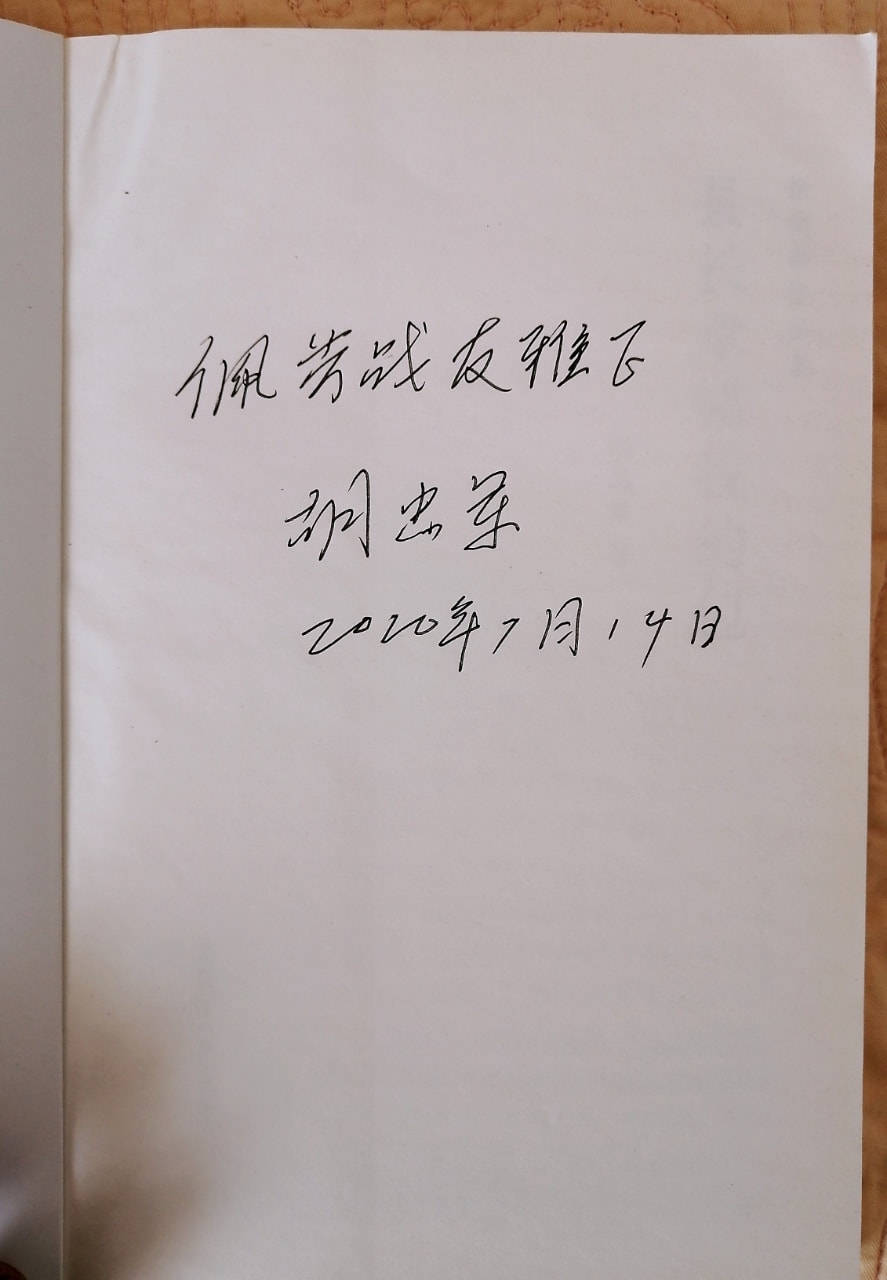 佩芳战友雅正
胡忠军
2020年7月14日